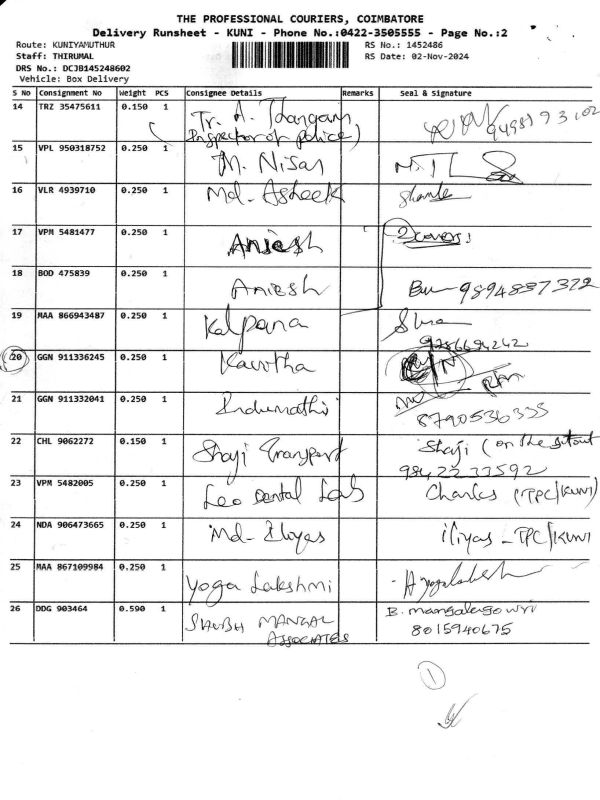 THE PROFESSIONAL COURIERS, COIMBATORE
Delivery Runsheet - KUNI - Phone No.:0422-3505555 - Page No.:2
Route: KUNIYAMUTHUR RS No.: 1452486
Staff: THIRUMAL RS Date: 02-Nov-2024
DRS No.: DCJB145248602
Vehicle: Box Delivery
S No Consignment No Weight PCS Consignee Details Remarks Seal & Signature
14 TRZ 35475611 0.150 1 Tr. A. Thangam
Inspector of police)
15 VPL 950318752 0.250 1 M. Nisar
16 VLR 4939710 0.250 1 Md- Asheek
17 VPM 5481477 0.250 1 Aniesh 2 covers
18 BOD 475839 0.250 1 Aniesh 9894837322
19 MAA 866943487 0.250 1 Kalpana
9786694242
20 GGN 911336245 0.250 1 Kavitha
21 GGN 911332041 0.250 1 Indumathi
8790536335
22 CHL 9062272 0.150 1 Shaji Transport Shaji (on the
9842233592
23 VPM 5482005 0.250 1 Leo Dental Lab Charles (TPC/KUNI)
24 NDA 906473665 0.250 1 Md- Iliyas iliyas - TPC/KUNI
25 MAA 867109984 0.250 1 Yoga Lakshmi
26 DDG 903464 0.590 1 SHUBH MANGAL B. mangalagowri
ASSOCIATES 8015940675
1